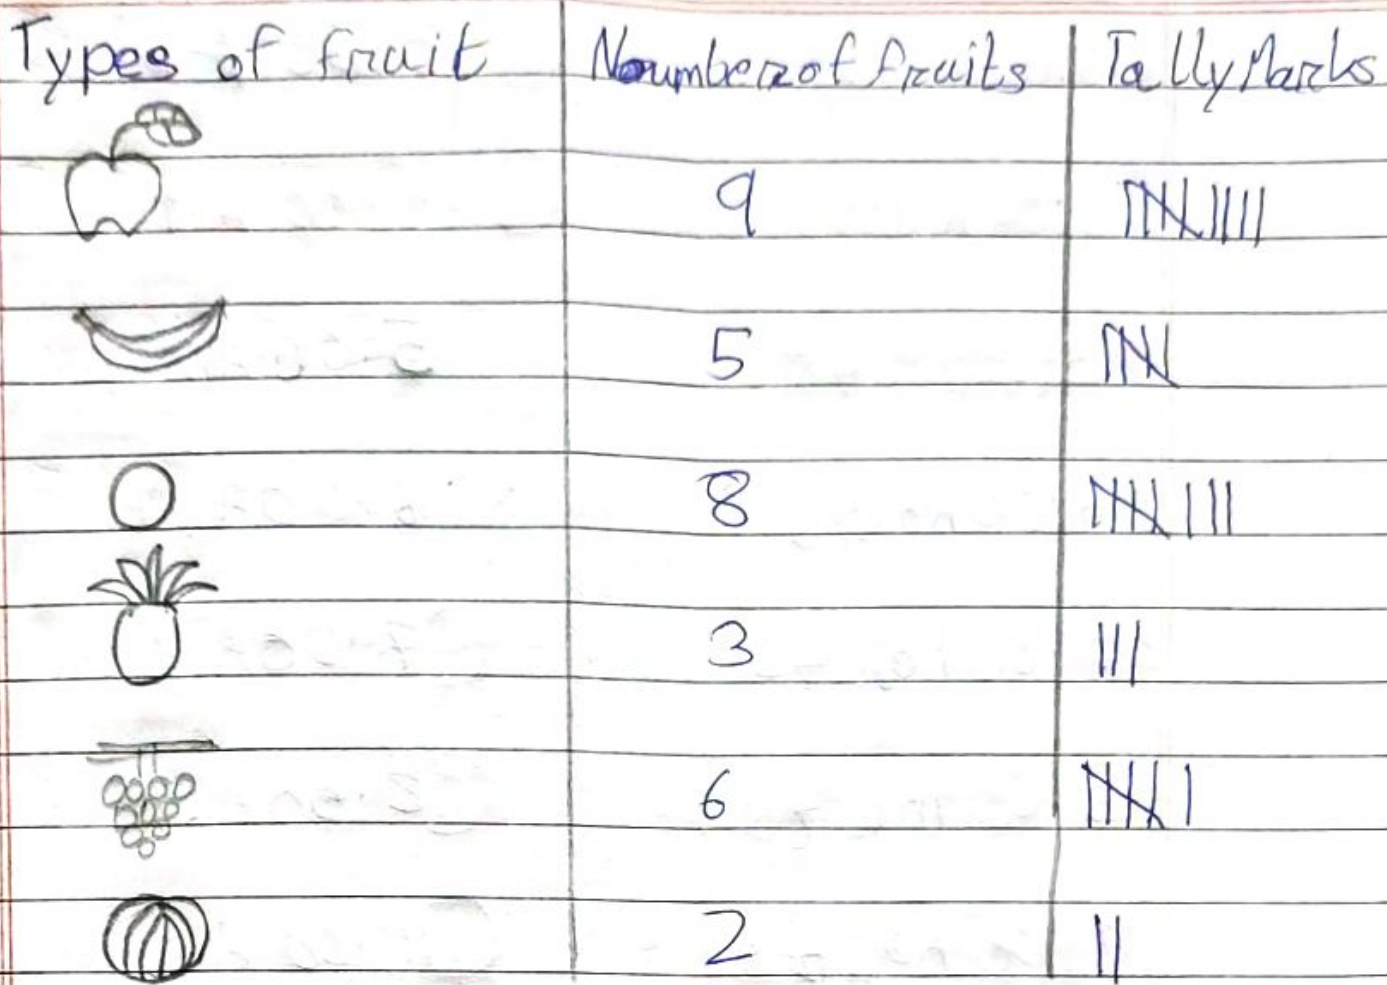 Types of fruit Noumber of fruits Tally Marks
9 𝍸||||
5 𝍸
8 𝍸|||
3 |||
6 𝍸|
2 ||